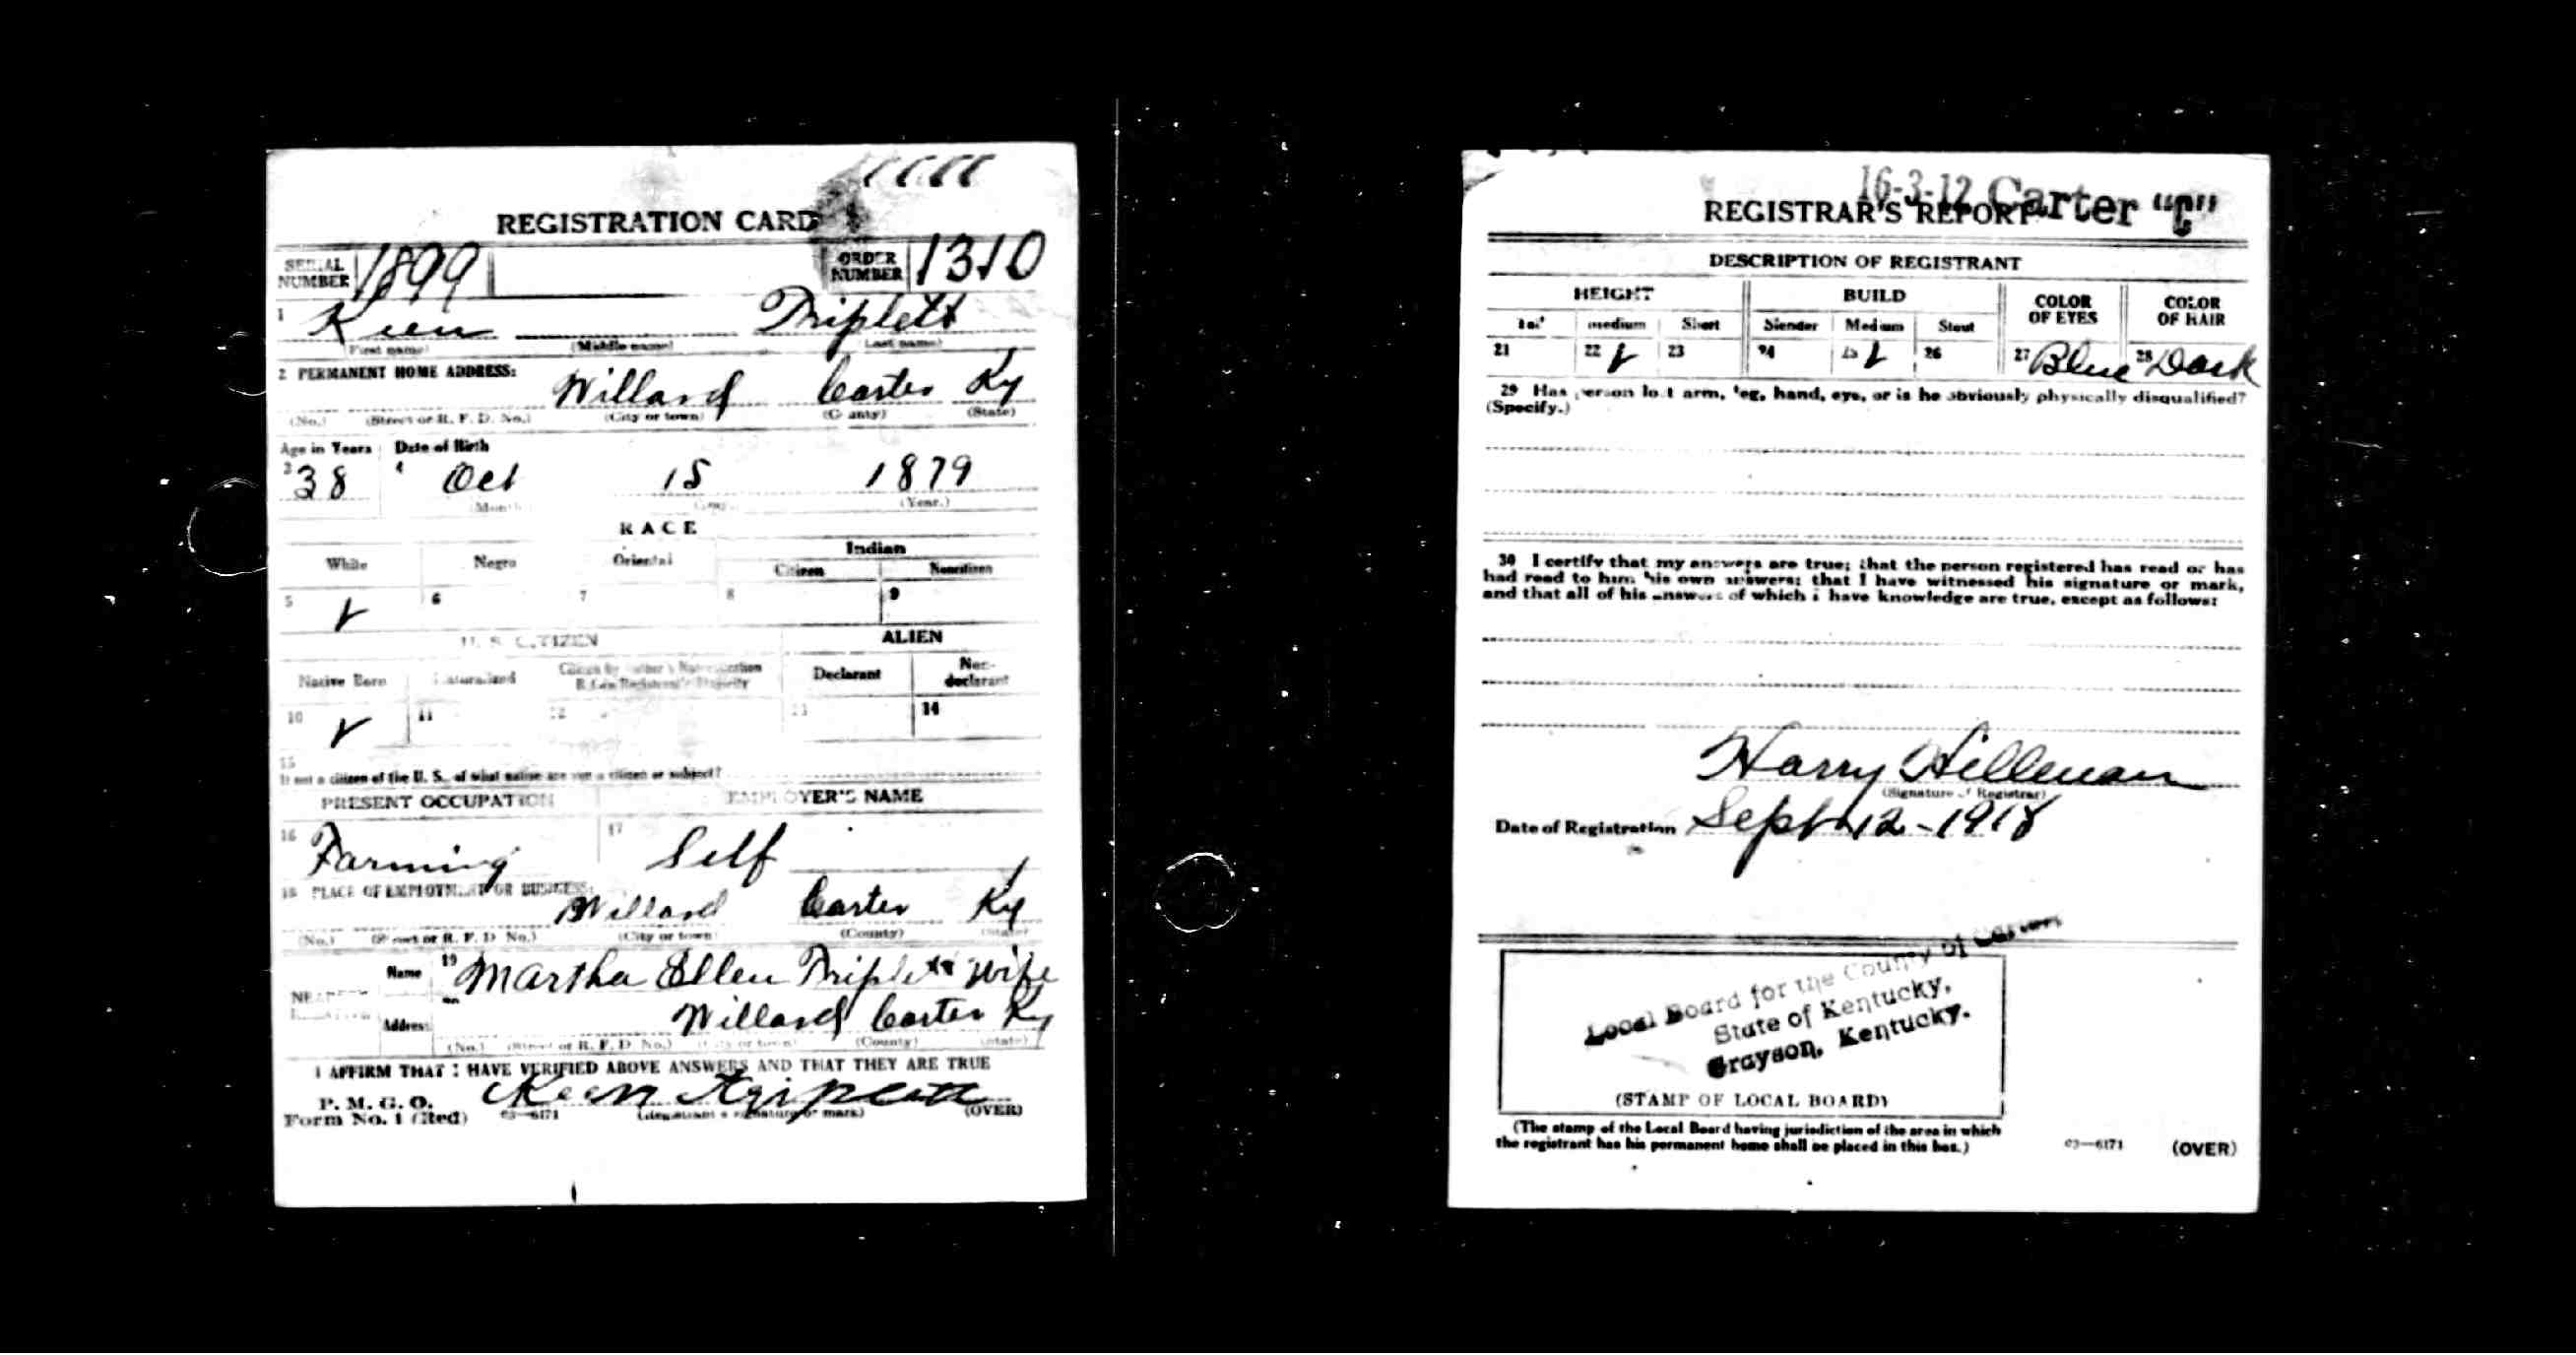 REGISTRATION CARD
SERIAL NUMBER 1899 ORDER NUMBER 1310
1 Keen Triplett
(First name) (Middle name) (Last name)
2 PERMANENT HOME ADDRESS:
Willard Carter Ky
(No.) (Street or R. F. D. No.) (City or town) (County) (State)
Age in Years Date of Birth
3 38 4 Oct 15 1879
(Month) (Day) (Year.)
RACE
White Negro Oriental Indian
Citizen Noncitizen
5 ✓ 6 7 8 9
U. S. CITIZEN ALIEN
Native Born Naturalized Citizen by Father's Naturalization Before Registrant's Majority Declarant Non-declarant
10 ✓ 11 12 13 14
15
If not a citizen of the U. S., of what nation are you a citizen or subject?
PRESENT OCCUPATION EMPLOYER'S NAME
16 Farming 17 Self
18 PLACE OF EMPLOYMENT OR BUSINESS:
Willard Carter Ky
(No.) (Street or R. F. D. No.) (City or town) (County) (State)
Name 19 Martha Ellen Triplett Wife
NEAREST RELATIVE
Address 20 Willard Carter Ky
(No.) (Street or R. F. D. No.) (City or town) (County) (State)
I AFFIRM THAT I HAVE VERIFIED ABOVE ANSWERS AND THAT THEY ARE TRUE
P. M. G. O.
Form No. 1 (Red) 03—6171 Keen Triplett (Registrant's signature or mark) (OVER)
16-3-12 Carter "C"
REGISTRAR'S REPORT
DESCRIPTION OF REGISTRANT
HEIGHT BUILD COLOR OF EYES COLOR OF HAIR
Tall Medium Short Slender Medium Stout
21 22 ✓ 23 24 25 ✓ 26 27 Blue 28 Dark
29 Has person lost arm, leg, hand, eye, or is he obviously physically disqualified?
(Specify.)
30 I certify that my answers are true; that the person registered has read or has
had read to him his own answers; that I have witnessed his signature or mark,
and that all of his answers of which I have knowledge are true, except as follows:
Harry Hilleman
(Signature of Registrar)
Date of Registration Sept 12-1918
Local Board for the County of Carter
State of Kentucky,
Grayson, Kentucky.
(STAMP OF LOCAL BOARD)
(The stamp of the Local Board having jurisdiction of the area in which
the registrant has his permanent home shall be placed in this box.)
03—6171 (OVER)